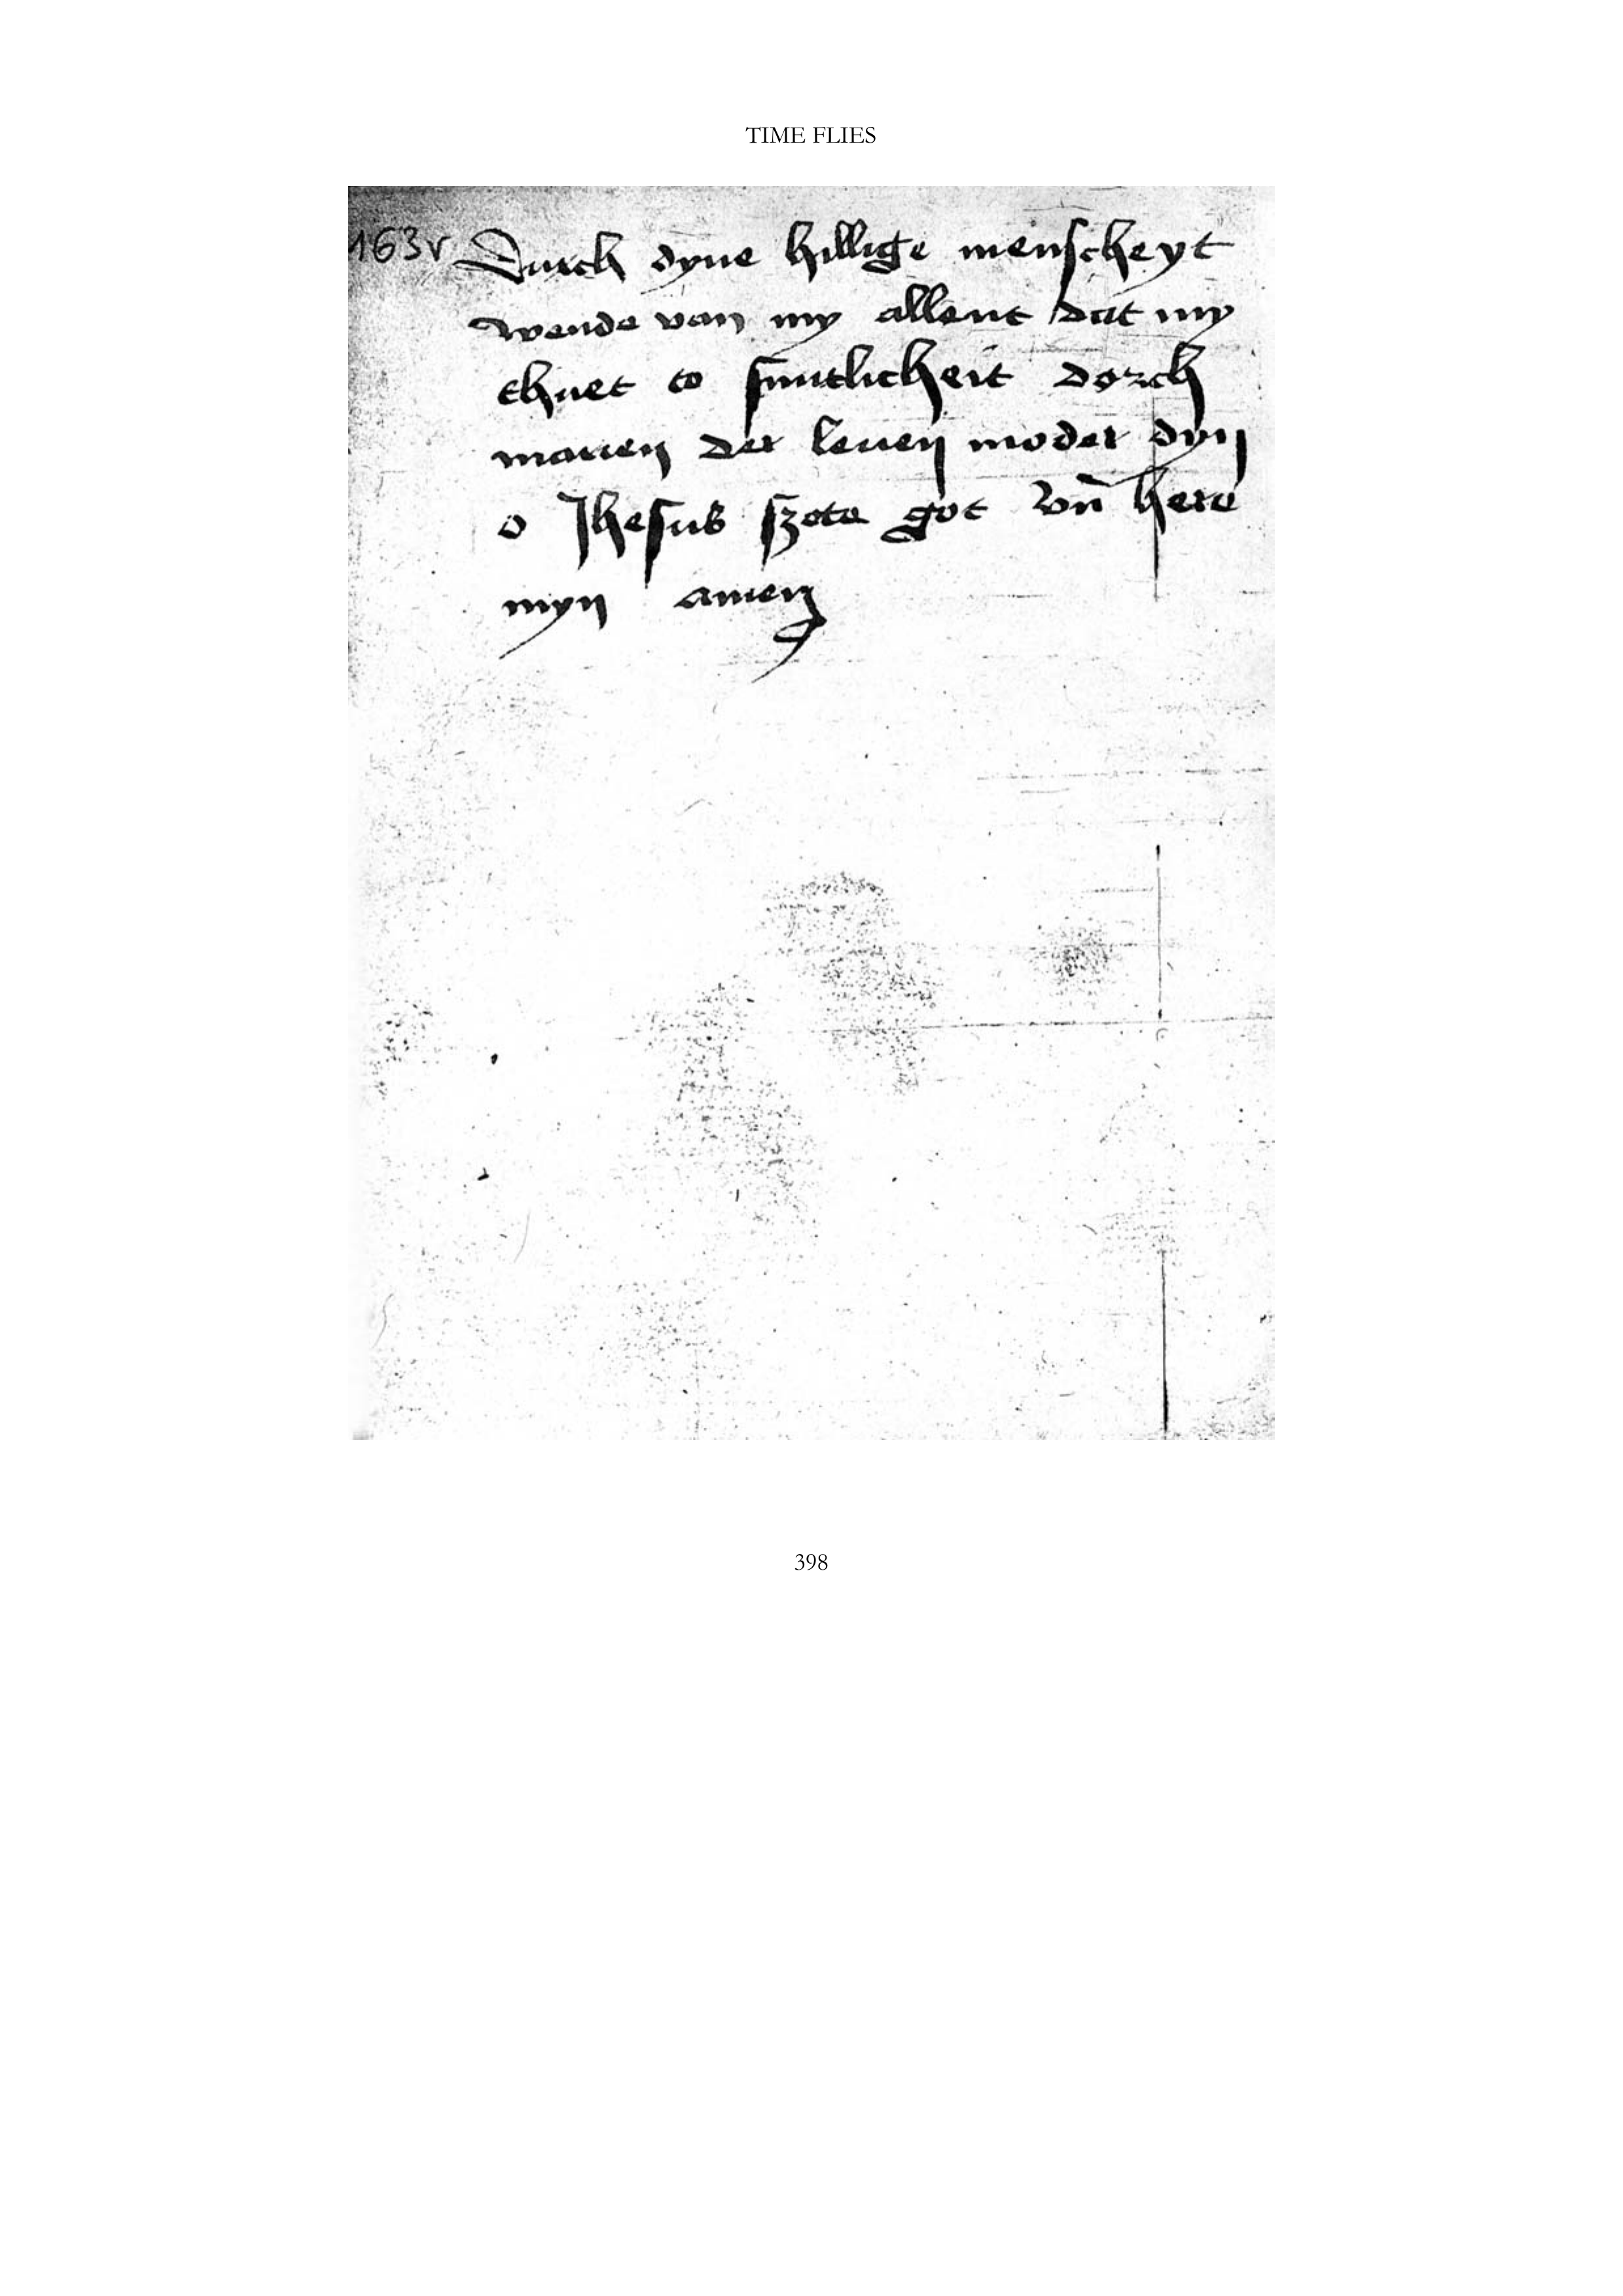 TIME FLIES
163v Durch dyne hillige menscheyt
wende van my allent dat my
thuet to suntlicheit dorch
marien der leuen moder dyn
o Jhesus szote got vn̄ here
myn amen
398